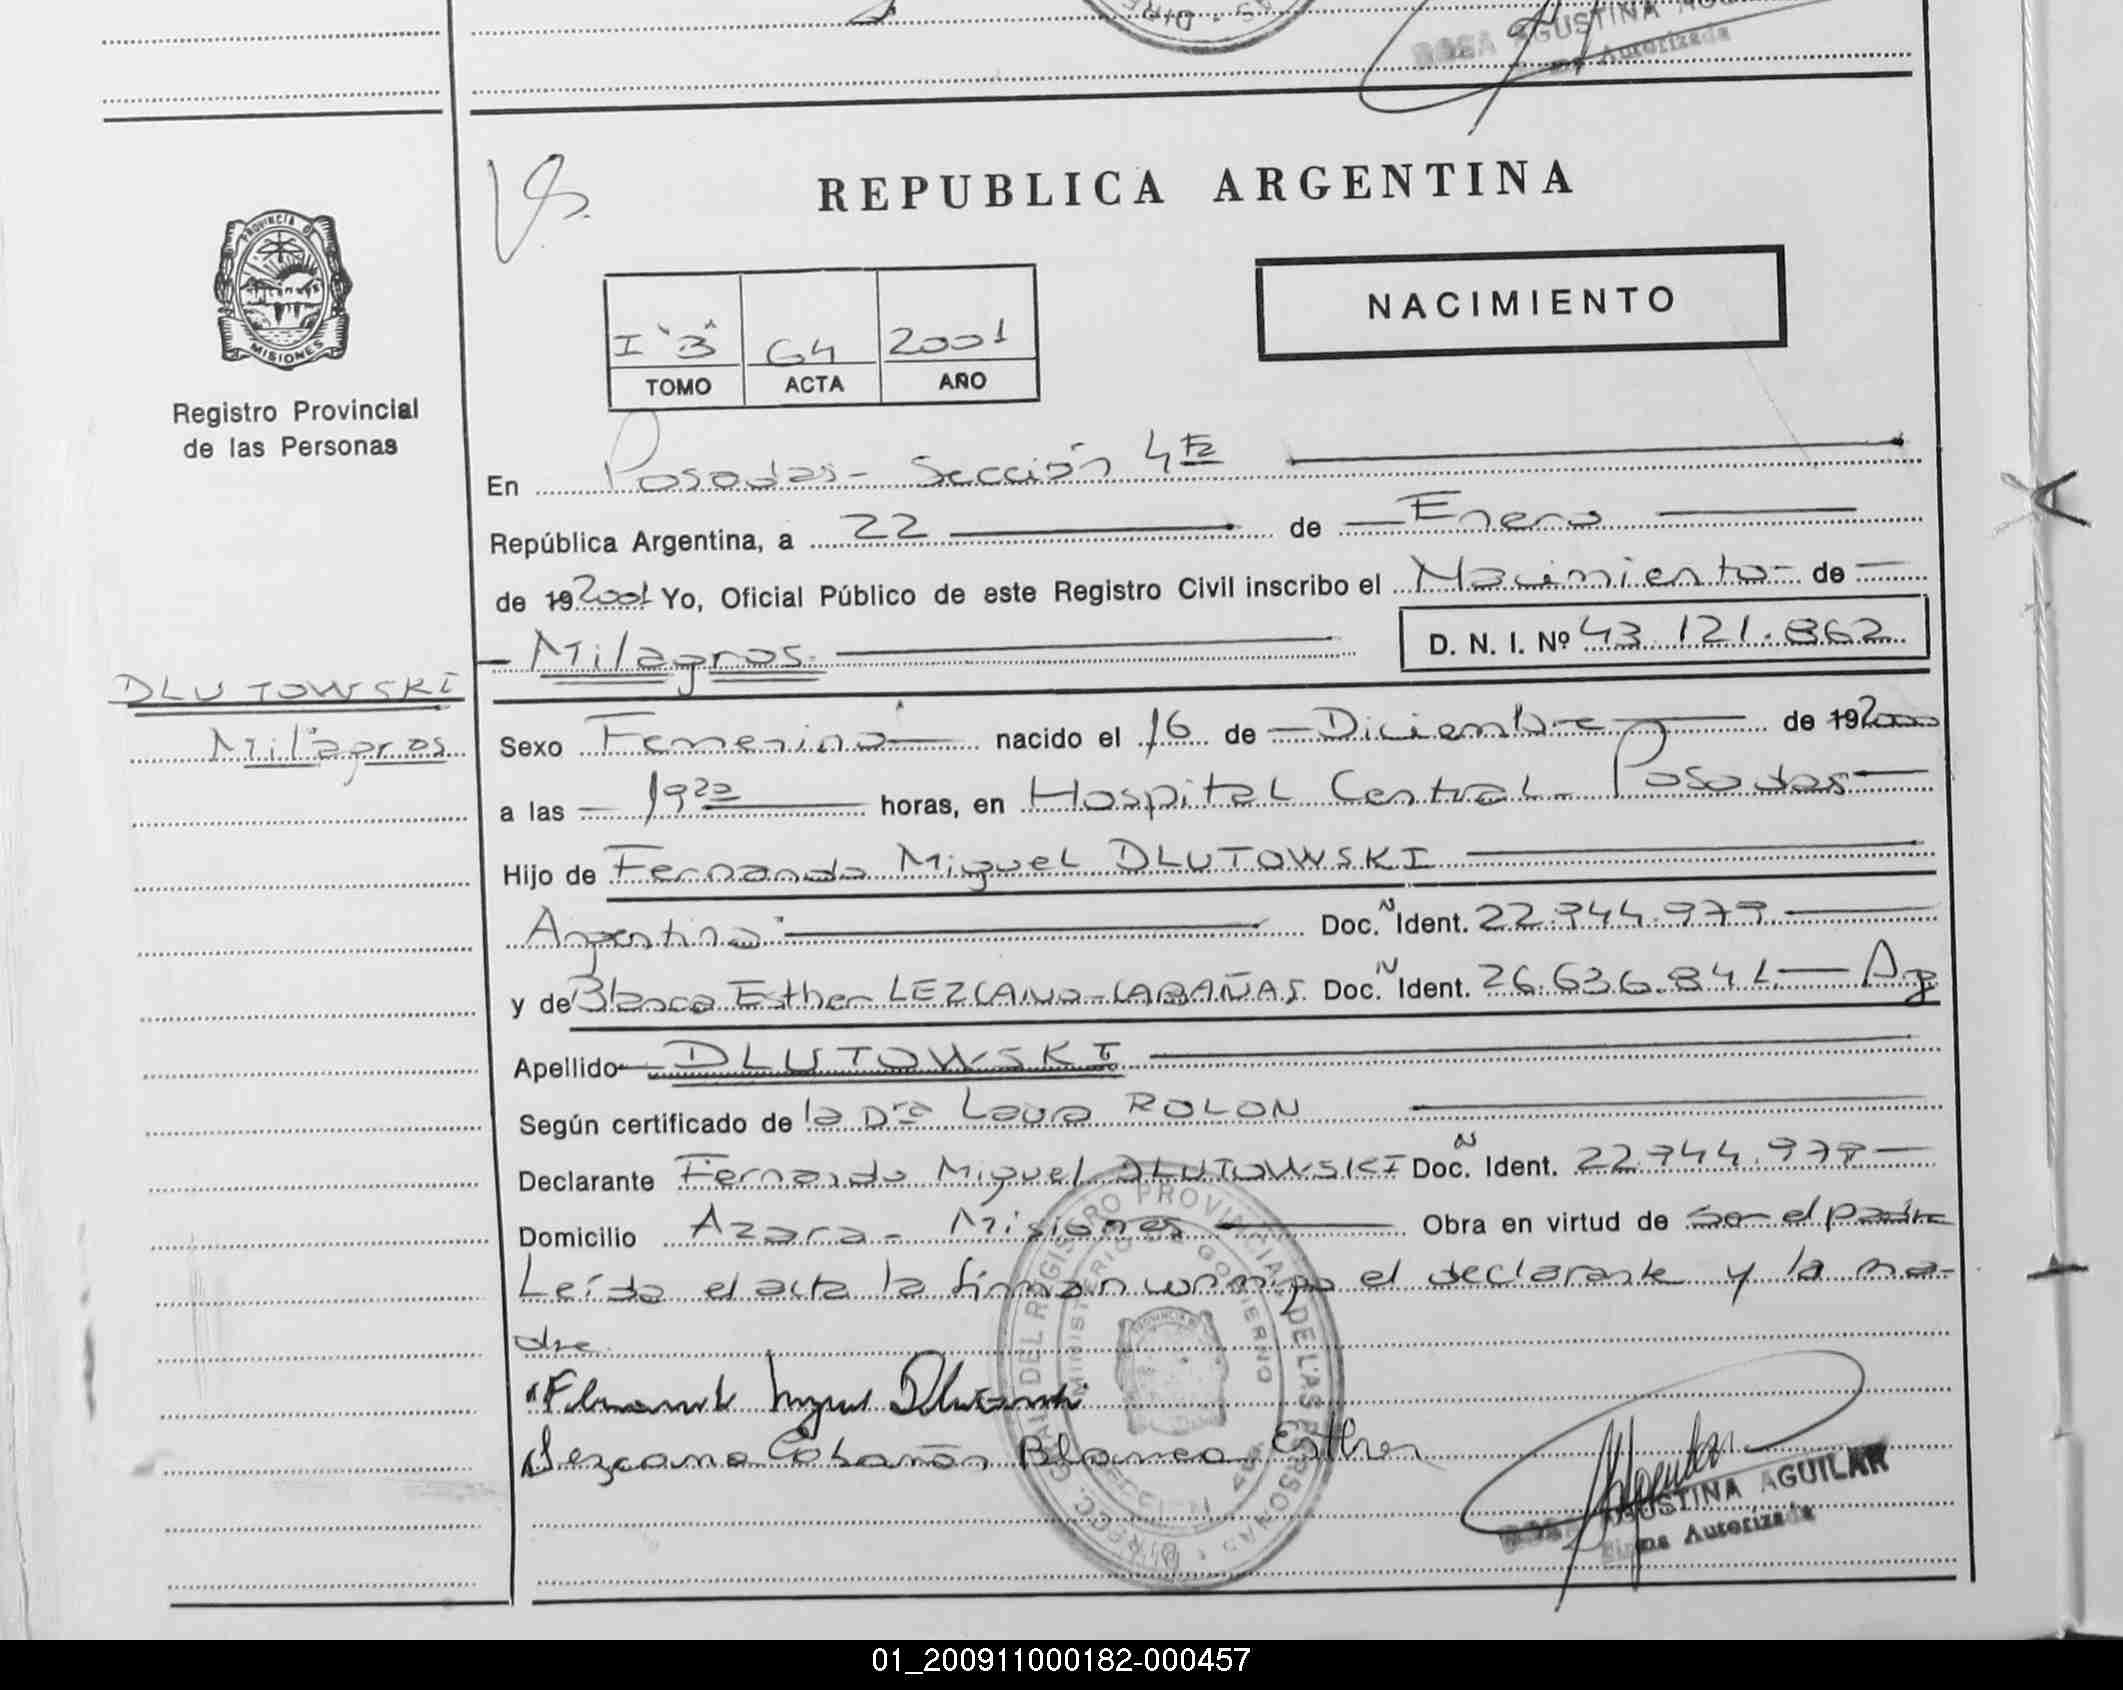 AGUSTINA
Autorizada
REPUBLICA ARGENTINA
NACIMIENTO
I "B" 64 2001
TOMO ACTA AÑO
PROVINCIA DE
MISIONES
Registro Provincial
de las Personas
En Posadas - Sección 4ta
República Argentina, a 22 de Enero
de 19 2001 Yo, Oficial Público de este Registro Civil inscribo el Nacimiento de
Milagros. D. N. I. Nº 43.121.862
DLUTOWSKI
Milagros
Sexo Femenino nacido el 16 de Diciembre de 19 2000
a las 19 horas, en Hospital Central - Posadas
Hijo de Fernando Miguel DLUTOWSKI
Argentino Doc. N Ident.
y de Blanca Esther LEZCANO-CABAÑAS Doc. N Ident. 26.636.841 Arg
Apellido DLUTOWSKI
Según certificado de la Dra Laura ROLON
Declarante Fernando Miguel DLUTOWSKI Doc. N Ident.
Domicilio Azara - Misiones Obra en virtud de ser el padre
Leída el acta la firman conmigo el declarante y la ma-
dre.
Lezcano Cabañas Blanca Esther
DIRECC. GRAL. DEL REGISTRO PROVINCIAL DE LAS PERSONAS
MINISTERIO DE GOBIERNO
ROSA AGUSTINA AGUILAR
Firma Autorizada
01_200911000182-000457